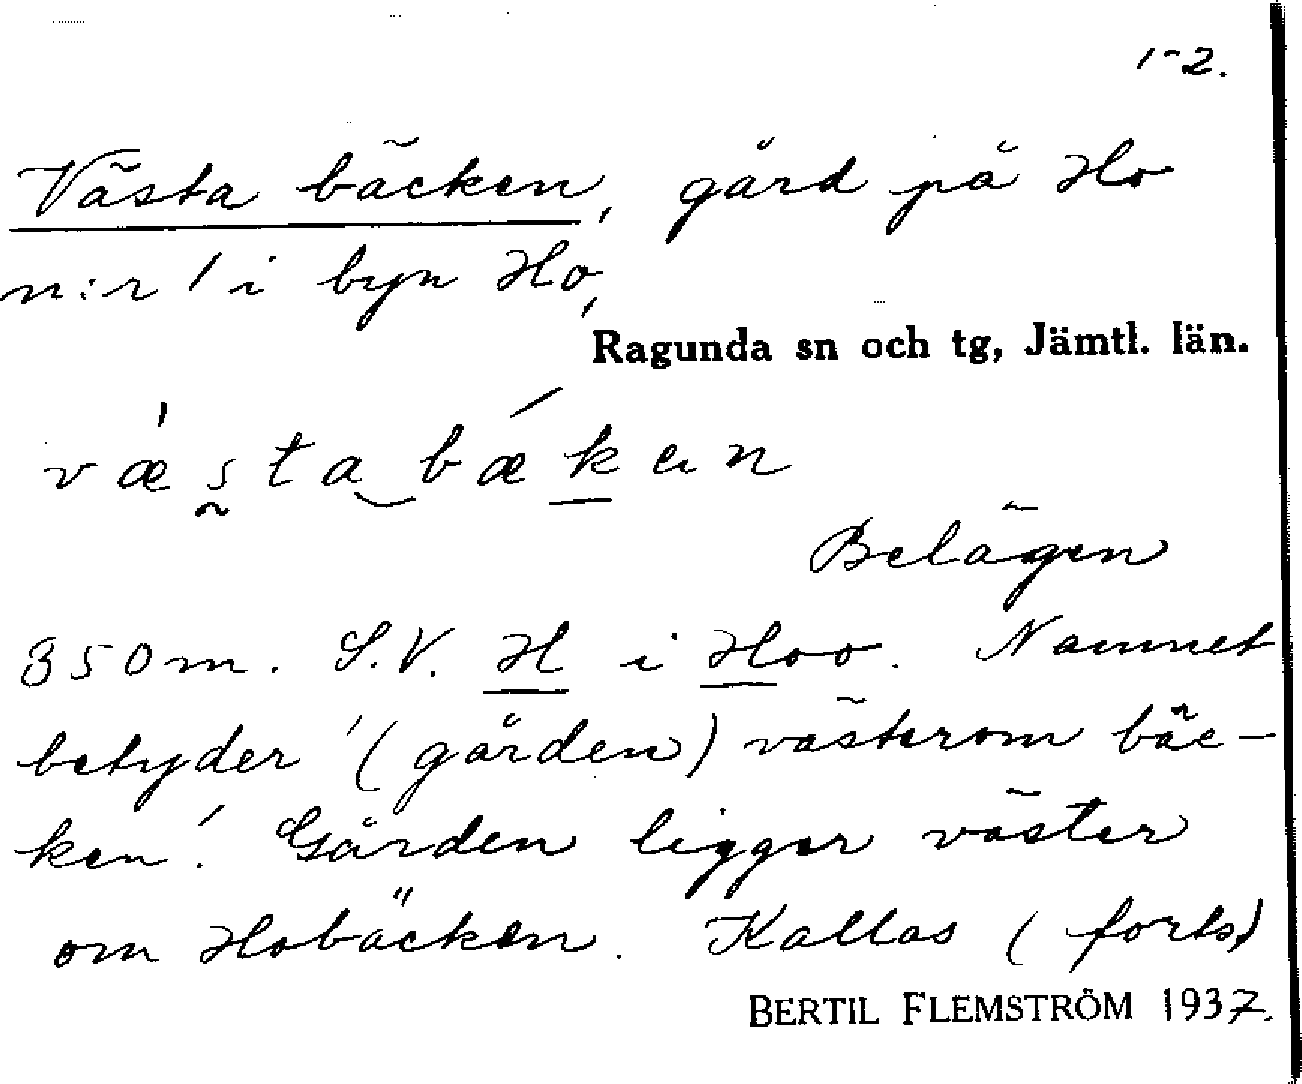 1-2.
Västa bäcken, gård på Ho
n:r 1 i byn Ho,
Ragunda sn och tg, Jämtl. län.
væ̀s̰ta‿bǽḵen
Belägen
350 m. S.V. H i Hoo. Namnet
betyder '(gården) västerom bäc-
ken'. Gården ligger väster
om Hobäcken. Kallas (forts.)
BERTIL FLEMSTRÖM 1937.